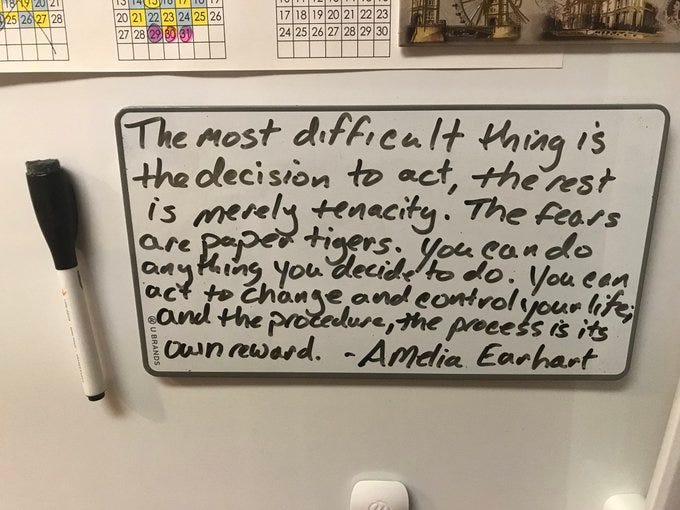 18 19 20 21
25 26 27
13 14 15 16 17 18 19
20 21 22 23 24 25 26
27 28 29 30 31
10 11 12 13 14 15 16
17 18 19 20 21 22 23
24 25 26 27 28 29 30
The most difficult thing is
the decision to act, the rest
is merely tenacity. The fears
are paper tigers. You can do
anything you decide to do. You can
act to change and control your life;
and the procedure, the process is its
own reward. - Amelia Earhart
U BRANDS